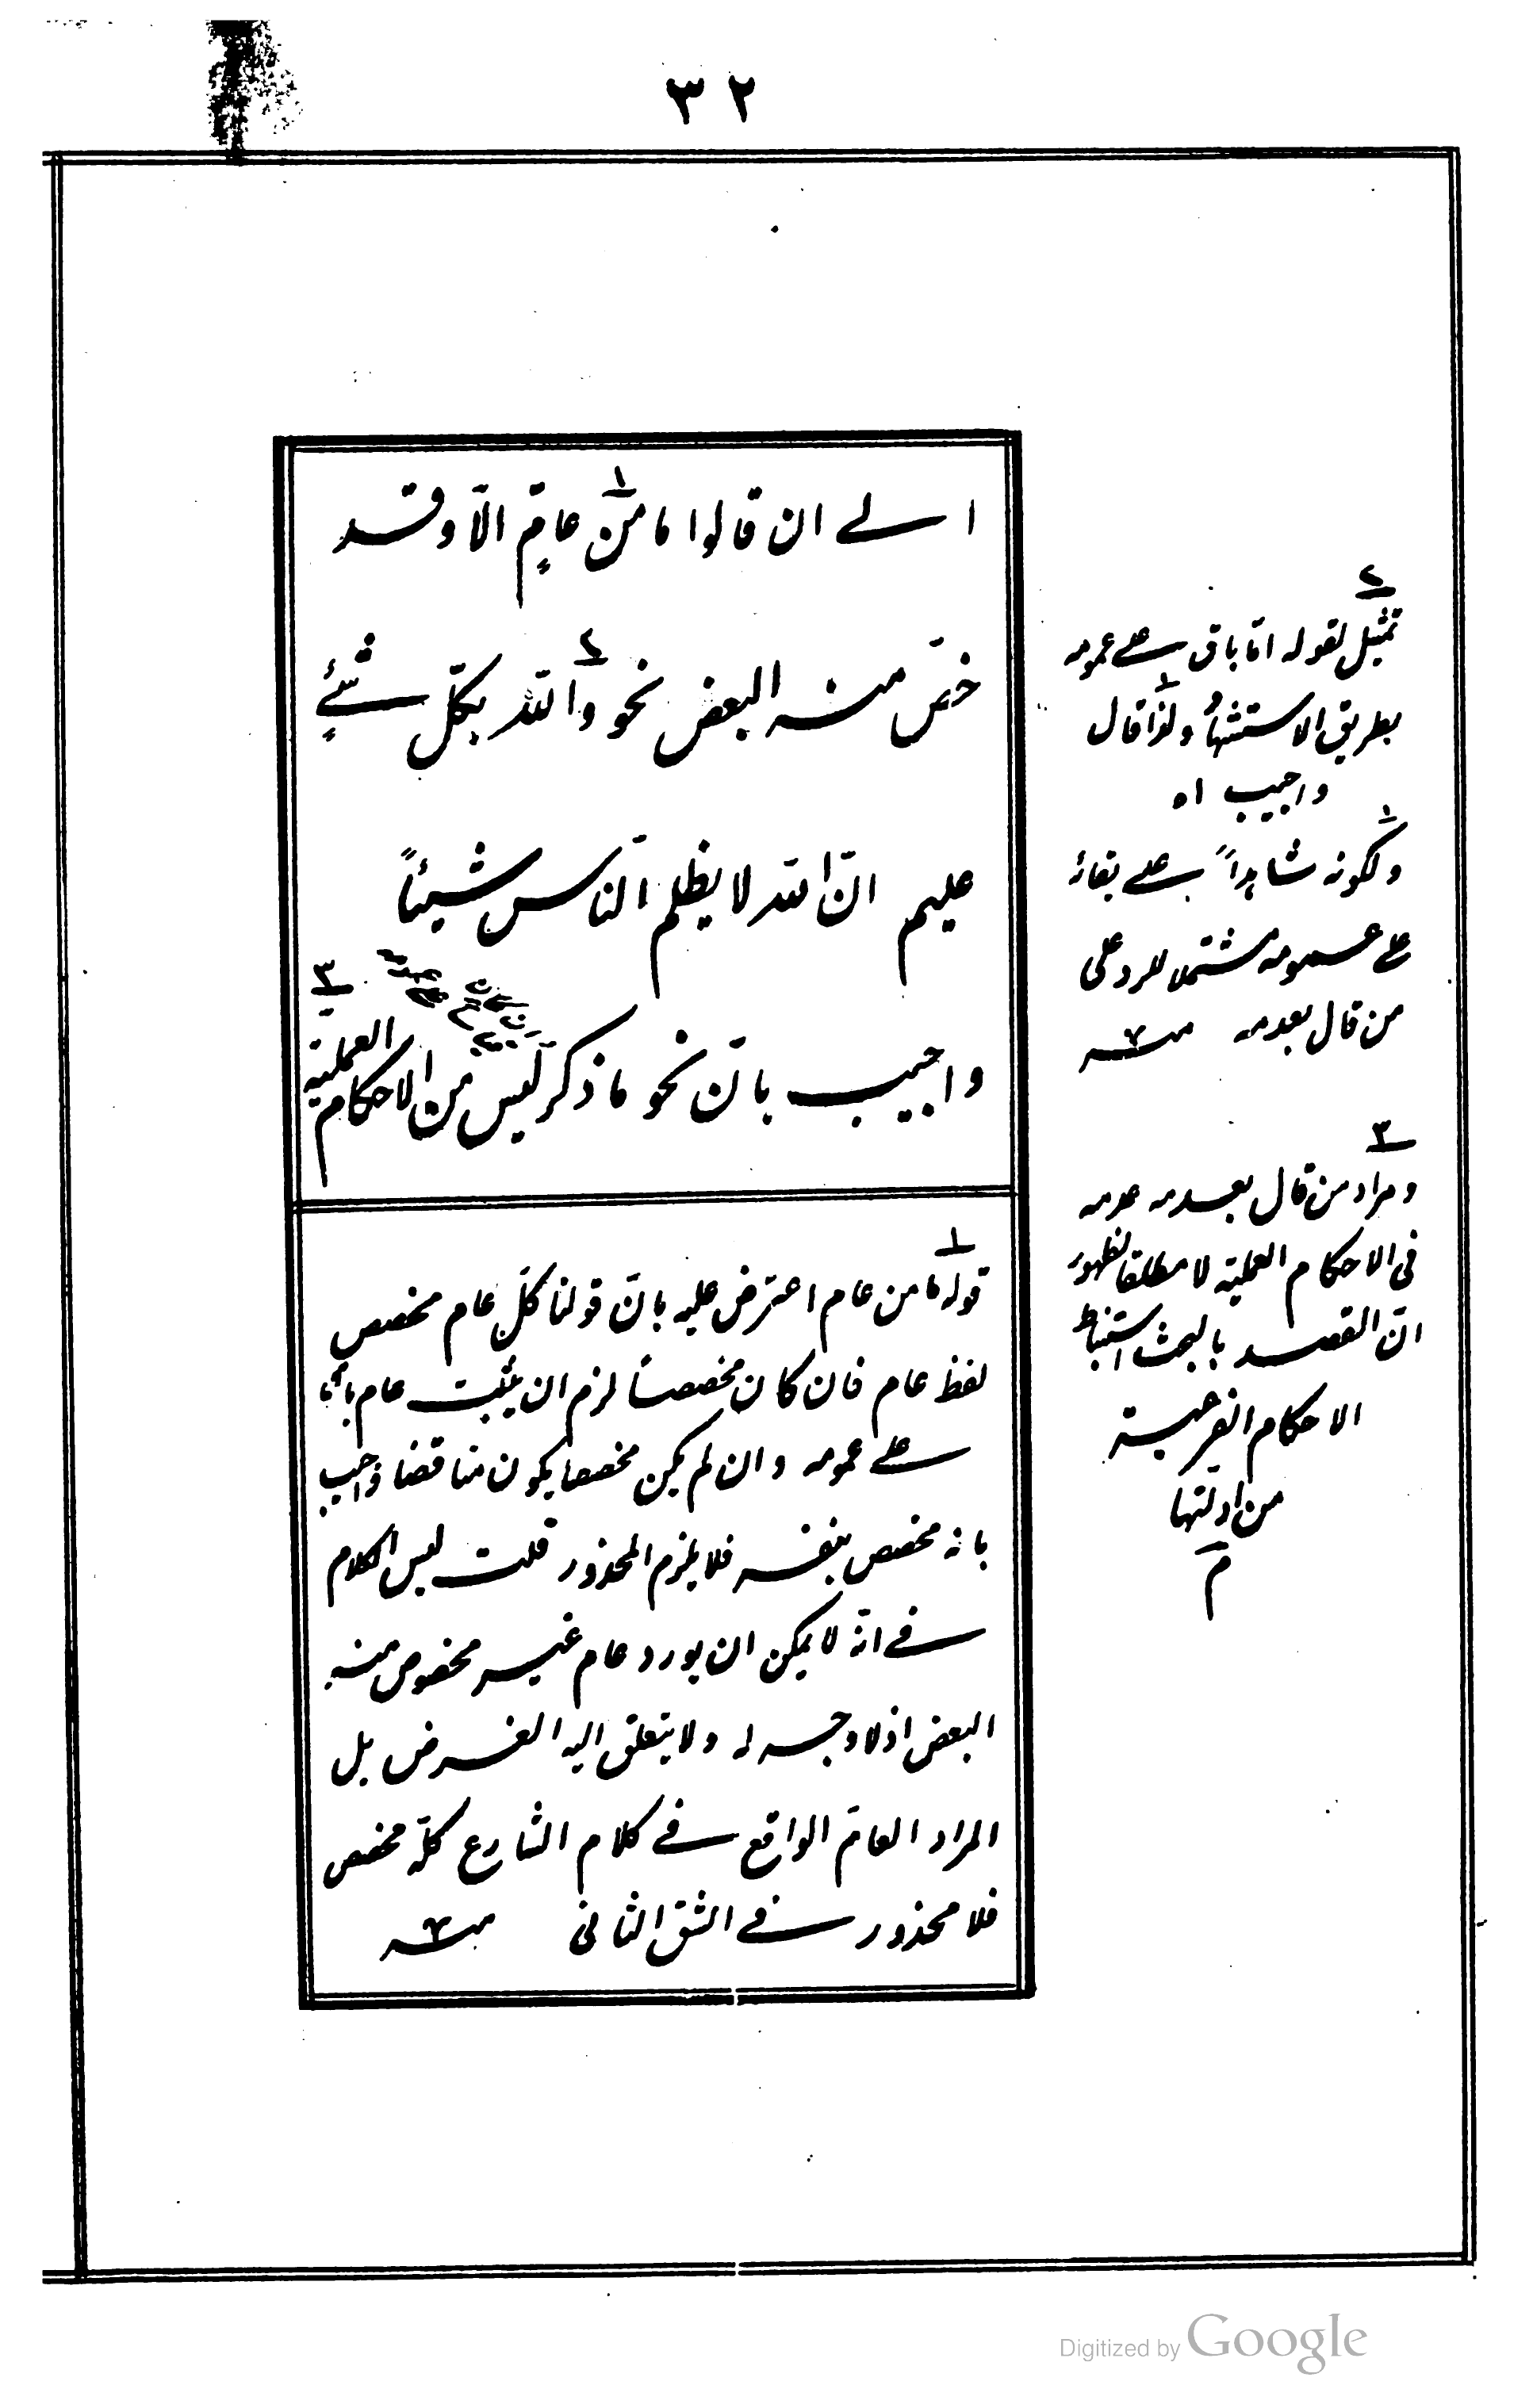 ٣٢
الے ان قالوا ما من عامٍّ الّا وقد
خصّ منه البعض نحو واللّه بكلّ شئےٍ
عليم انّ اللّه لا يظلم النّاس شيئاً
واجيب بانّ نحو ما ذكر ليس من الاحكام
العمليّة
١
قوله ما من عام اعترض عليه بانّ قولنا كلّ عام مخصص
لفظ عام فان كان مخصصاً لزم ان يثبت عام باق
علے عمومه وان لم يكن مخصصا يكون مناقضا واجيب
بانه مخصص بنفسه فلا يلزم المحذور قلت ليس الكلام
فے انّه لا يمكن ان يورد عام غير مخصوص منه
البعض اذ لا وجه له ولا يتعلق اليه الغرض بل
المراد العامّ الواقع فے كلام الشارع كلّه مخصص
فلا محذور فے الشق الثانى منه
٢
تمثيل لقوله امّا باق علے عمومه
بطريق الاستشهاد ولذا قال
واجيب اه
١
ولكونه شاهداً علے بقائه
علے عمومه مشتملا للرد على
من قال بعدمه منه
٣
ومراد من قال بعدمه عدمه
فى الاحكام العملية لا مطلقا لظهور
انّ القصد بالبحث استنباط
الاحكام الفرعية
من ادلّتها
م
Digitized by Google